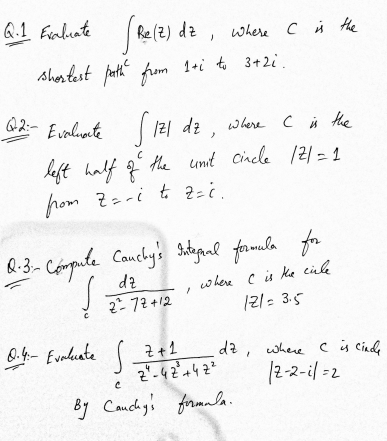 Q.1 Evaluate ∫_C Re(z) dz , where C is the
shortest path from 1+i to 3+2i.
Q2:- Evaluate ∫_C |z| dz , where C is the
left half of the unit circle |z| = 1
from z = -i to z = i.
Q.3:- Compute Cauchy's Integral formula for
∫_C dz / (z² - 7z + 12) , where C is the circle
|z| = 3.5
Q.4:- Evaluate ∫_C (z+1) / (z⁴ - 4z³ + 4z²) dz , where C is circle
|z-2-i| = 2
By Cauchy's formula.